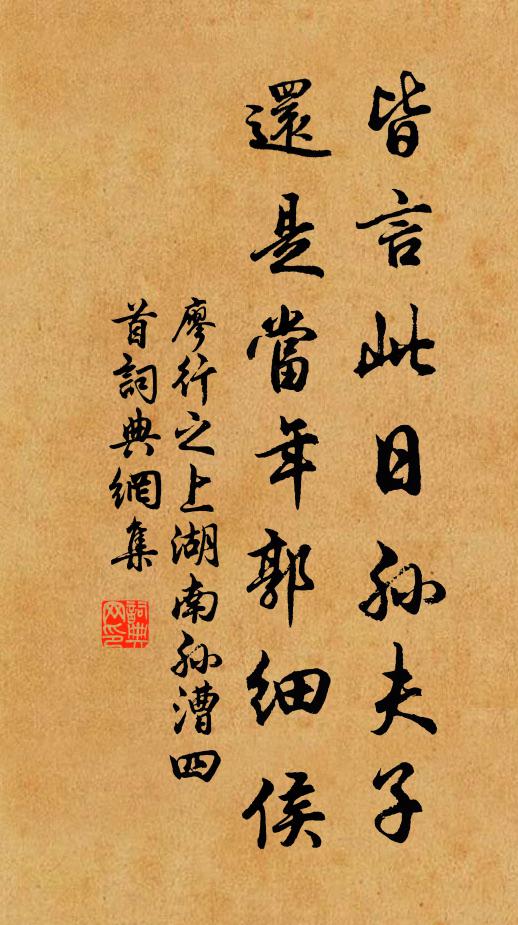 皆言此日孙夫子
還是當年郭細侯
廖行之上湖南孙漕四
首詞典網集
詞典网印